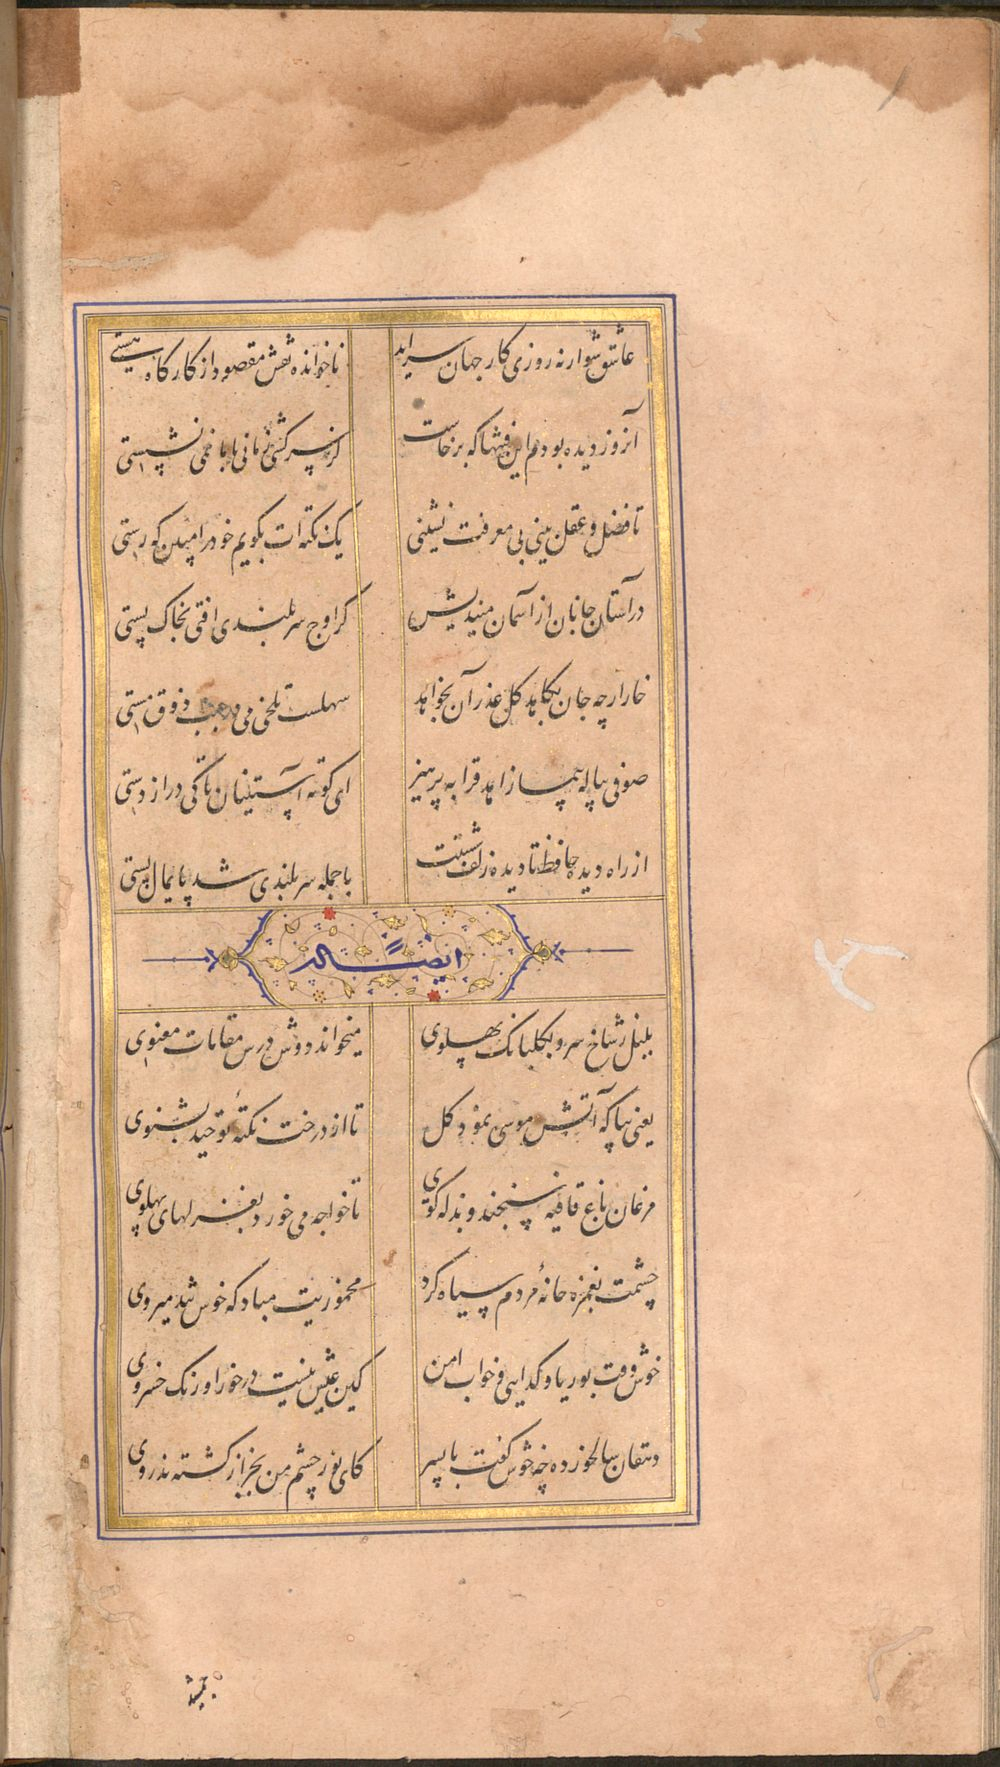 عاشق شو ارنه روزی کار جهان سراید
ناخوانده نقش مقصود از کارگاه هستی
آنروز دیده بودم این فتنها که برخاست
کز سرکشی زمانی با ما نمی نشستی
تا فضل و عقل بینی بی معرفت نشینی
یک نکته ات بگویم خود را مبین که رستی
در آستان جانان از آسمان میندیش
کز اوج سربلندی افتی بخاک پستی
خار ارچه جان بکاهد گل عذر آن بخواهد
سهلست تلخی می در جنب ذوق مستی
صوفی پیاله پیما زاهد قرابه پرهیز
ای کوته آستینان تا کی دراز دستی
از راه دیده حافظ تا دیده زلف پستت
با جمله سربلندی شد پایمال پستی
ایضاً له
بلبل ز شاخ سرو بگلبانک پهلوی
میخواند دوش درس مقامات معنوی
یعنی بیا که آتش موسی نمود گل
تا از درخت نکتهٔ توحید بشنوی
مرغان باغ قافیه سنجند و بذله گوی
تا خواجه می خورد بغزلهای پهلوی
چشمت بغمزه خانهٔ مردم سیاه کرد
مخموریت مباد که خوش تند میروی
خوش وقت بوریا و گدایی و خواب امن
کین عیش نیست درخور اورنک خسروی
دهقان سالخورده چه خوش گفت با پسر
کای نور چشم من بجز از کشته ندروی